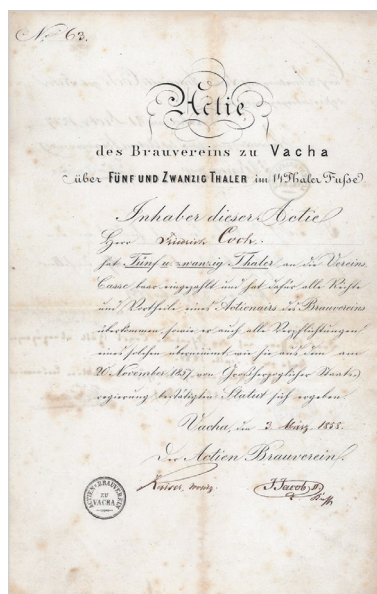 No. 63.
Actie
des Brauvereins zu Vacha
über FÜNF UND ZWANZIG THALER im 14 Thaler Fusse
Inhaber dieser Actie
Herr Friedrich Coch
hat Fünf u zwanzig Thaler an die Vereins
Casse baar eingezahlt und hat dafür alle Rechte
und Vortheile eines Actionairs des Brauvereins
überkommen, sowie er auch alle Verpflichtungen
eines solchen übernimmt, wie sie aus dem am
20 November 1857 von Grossherzoglicher Staats-
regierung bestätigten Statut sich ergeben.
Vacha, den 3. März 1858.
Der Actien Brauverein.
J. Jacob
ACTIEN-BRAUVEREIN
ZU
VACHA